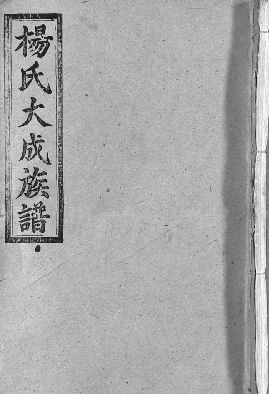 楊氏大成族譜